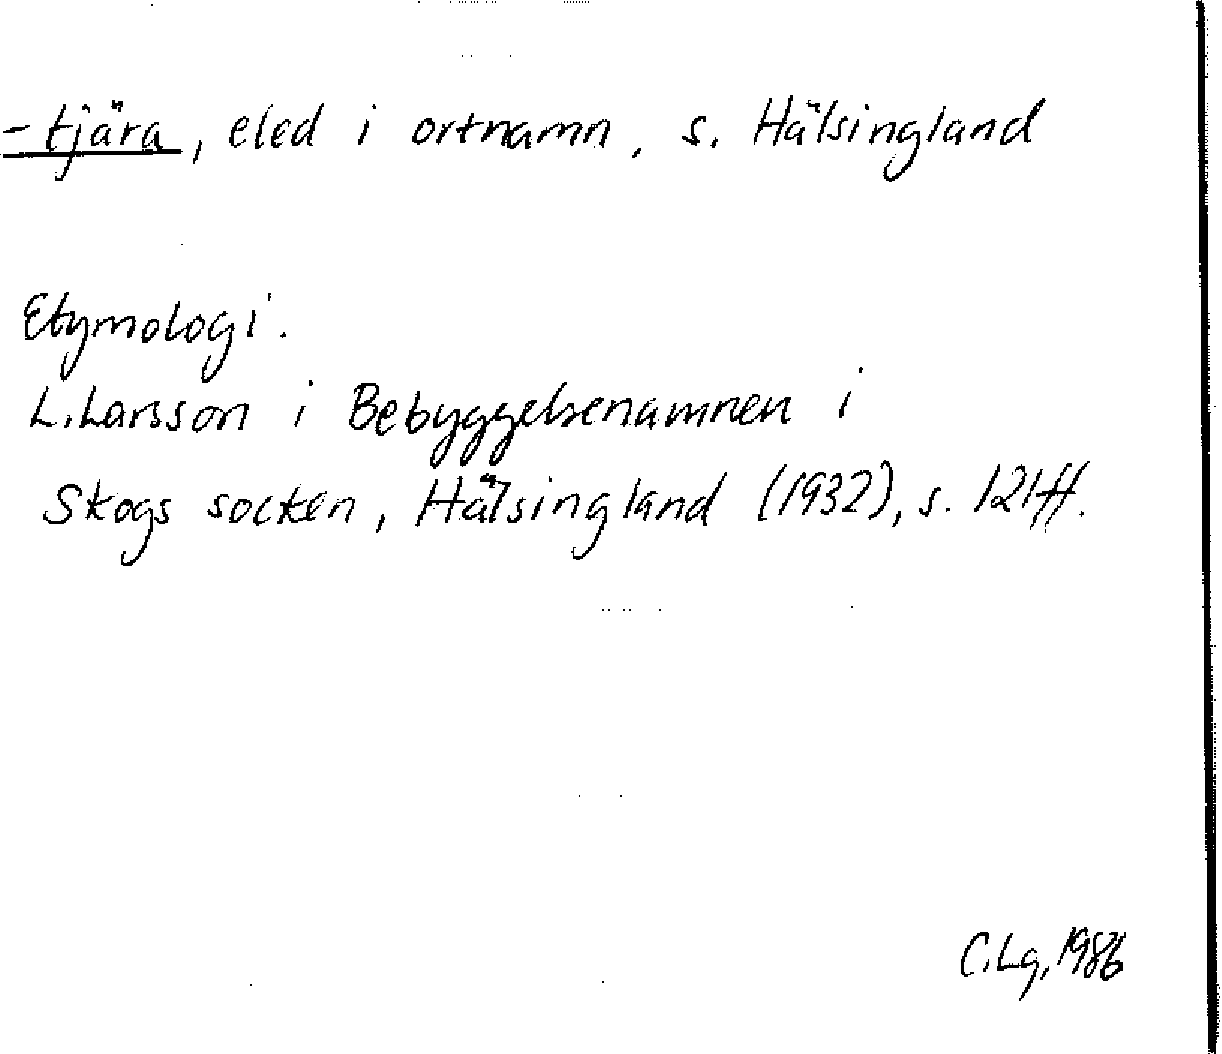 -tjära, eled i ortnamn, s. Hälsingland
Etymologi.
L. Larsson i Bebyggelsenamnen i
Skogs socken, Hälsingland (1932), s. 121ff.
C.Lg, 1986